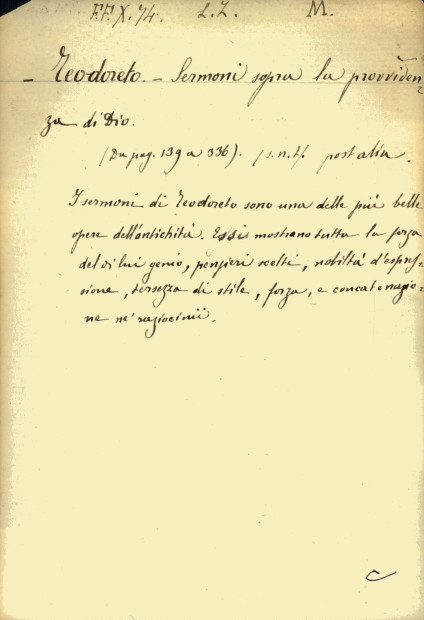 FF. X. 74. L. L. M.
- Teodoreto. - Sermoni sopra la provviden-
za di Dio.
(Da pag. 139 a 336). (s.n.t). post alia.
I sermoni di Teodoreto sono una delle più belle
opere dell'antichità. Essi mostrano tutta la forza
del di lui genio, pensieri scelti, nobiltà d'espres-
sione, tersezza di stile, forza, e concatenazio-
ne ne' raziocinii.
C